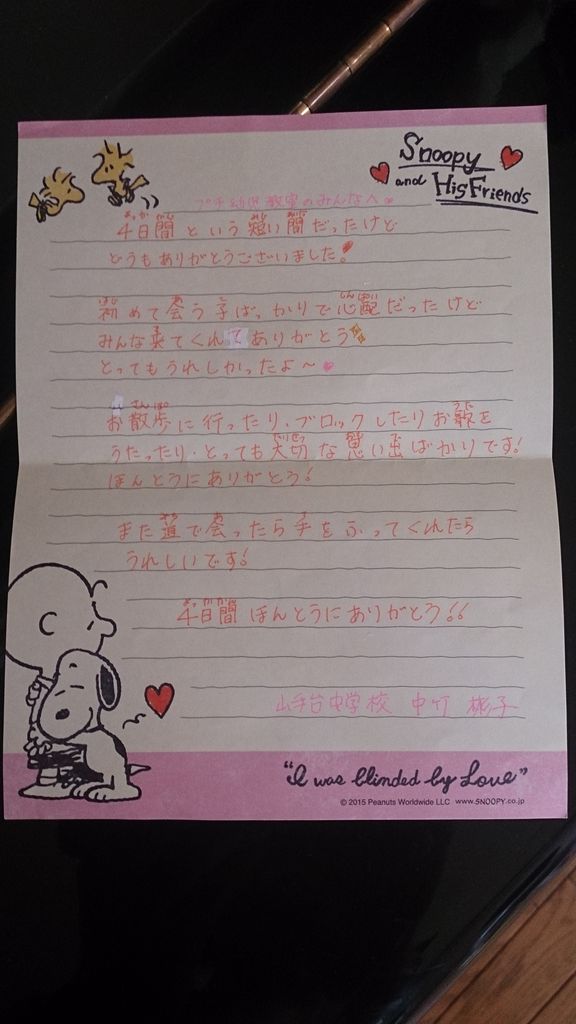 Snoopy
and His Friends
プチ幼児教室のみんなへ
4日間という短い間だったけど
どうもありがとうございました!
初めて会う子ばっかりで心配だったけど
みんな来てくれてありがとう
とってもうれしかったよ〜
お散歩に行ったり、ブロックしたりお歌を
うたったり、とっても大切な思い出ばかりです!
ほんとうにありがとう!
また道で会ったら手をふってくれたら
うれしいです!
4日間ほんとうにありがとう!!
山手台中学校 中竹 彬子
"I was blinded by Love"
© 2015 Peanuts Worldwide LLC www.SNOOPY.co.jp